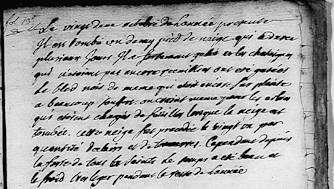 Le vingt deux octobre de l'année precedente
Il est tombé un demy pied de neige qui a duré
plusieurs jours Il a fortement gelé et les chataignes
qui n'etoient pas encore recueillies ont été gatées
le bled noir de meme qui etoit dehors. Les plantes
a beaucoup souffert on craint meme pour les arbres
qui etoient chargés de feuilles lorsque la neige est
tombée. cette neige fut precedée le vingt un par
quantité d'eclairs et de tonnerres. Cependant depuis
la foire de tous les saints le temps a été beau et
le froid tres leger pendant le reste de l'année